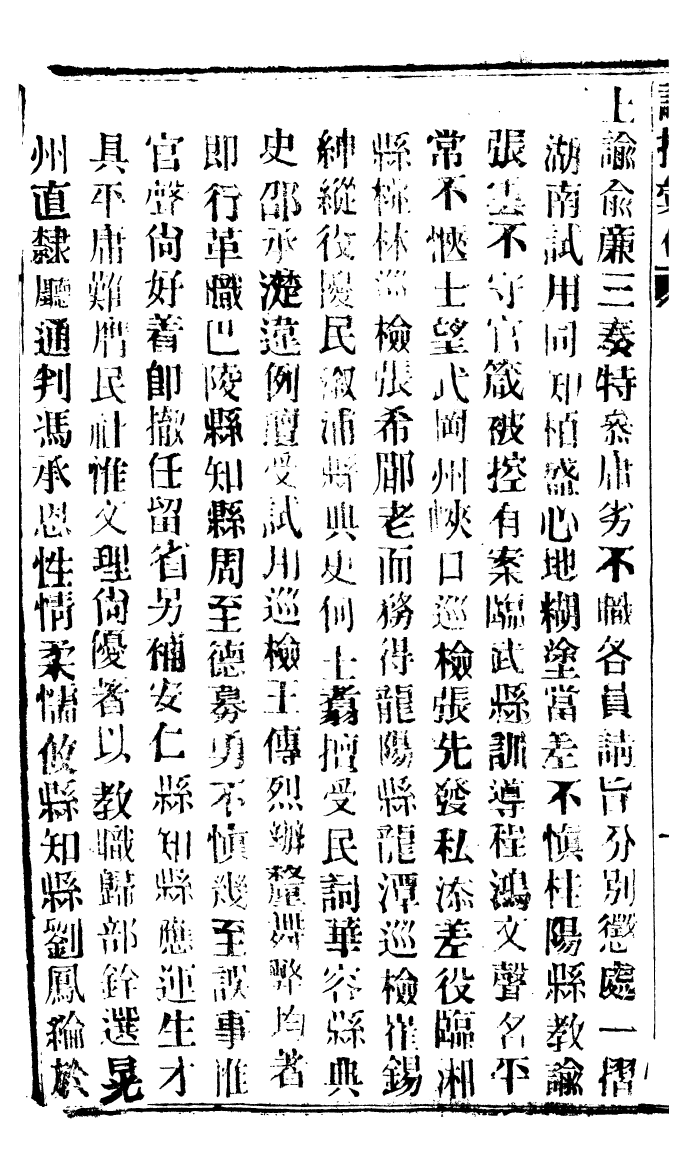 諭摺彙存
上諭俞廉三奏特參庸劣不職各員請旨分別懲處一摺
湖南試用同知柏盛心地糊塗當差不慎桂陽縣教諭
張雲不守官箴被控有案臨武縣訓導程鴻文聲名平
常不愜士望武岡州峽口巡檢張先發私添差役臨湘
縣桃林巡檢張希郿老而務得龍陽縣龍潭巡檢崔錫
紳縱役擾民漵浦縣典史何士翥擅受民詞華容縣典
史邵承濋違例擅受試用巡檢王傳烈辦釐舞弊均著
即行革職巴陵縣知縣周至德募勇不慎幾至誤事惟
官聲尚好着即撤任留省另補安仁縣知縣應運生才
具平庸難膺民社惟文理尚優著以教職歸部銓選晃
州直隸廳通判馮承恩性情柔懦攸縣知縣劉鳳綸於